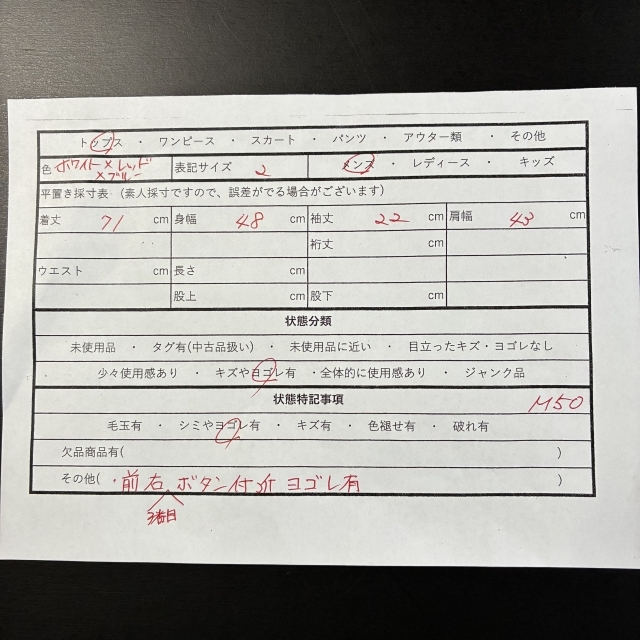 トップス ・ ワンピース ・ スカート ・ パンツ ・ アウター類 ・ その他
色 ホワイト×レッド×ブルー 表記サイズ 2 メンズ ・ レディース ・ キッズ
平置き採寸表 (素人採寸ですので、誤差がでる場合がございます)
着丈 71 cm 身幅 48 cm 袖丈 22 cm 肩幅 43 cm
裄丈 cm
ウエスト cm 長さ cm
股上 cm 股下 cm
状態分類
未使用品 ・ タグ有(中古品扱い) ・ 未使用品に近い ・ 目立ったキズ・ヨゴレなし
少々使用感あり ・ キズやヨゴレ有 ・全体的に使用感あり ・ ジャンク品
状態特記事項 M50
毛玉有 ・ シミやヨゴレ有 ・ キズ有 ・ 色褪せ有 ・ 破れ有
欠品商品有( )
その他( ・前右 ボタン付近 ヨゴレ有 )
3番目